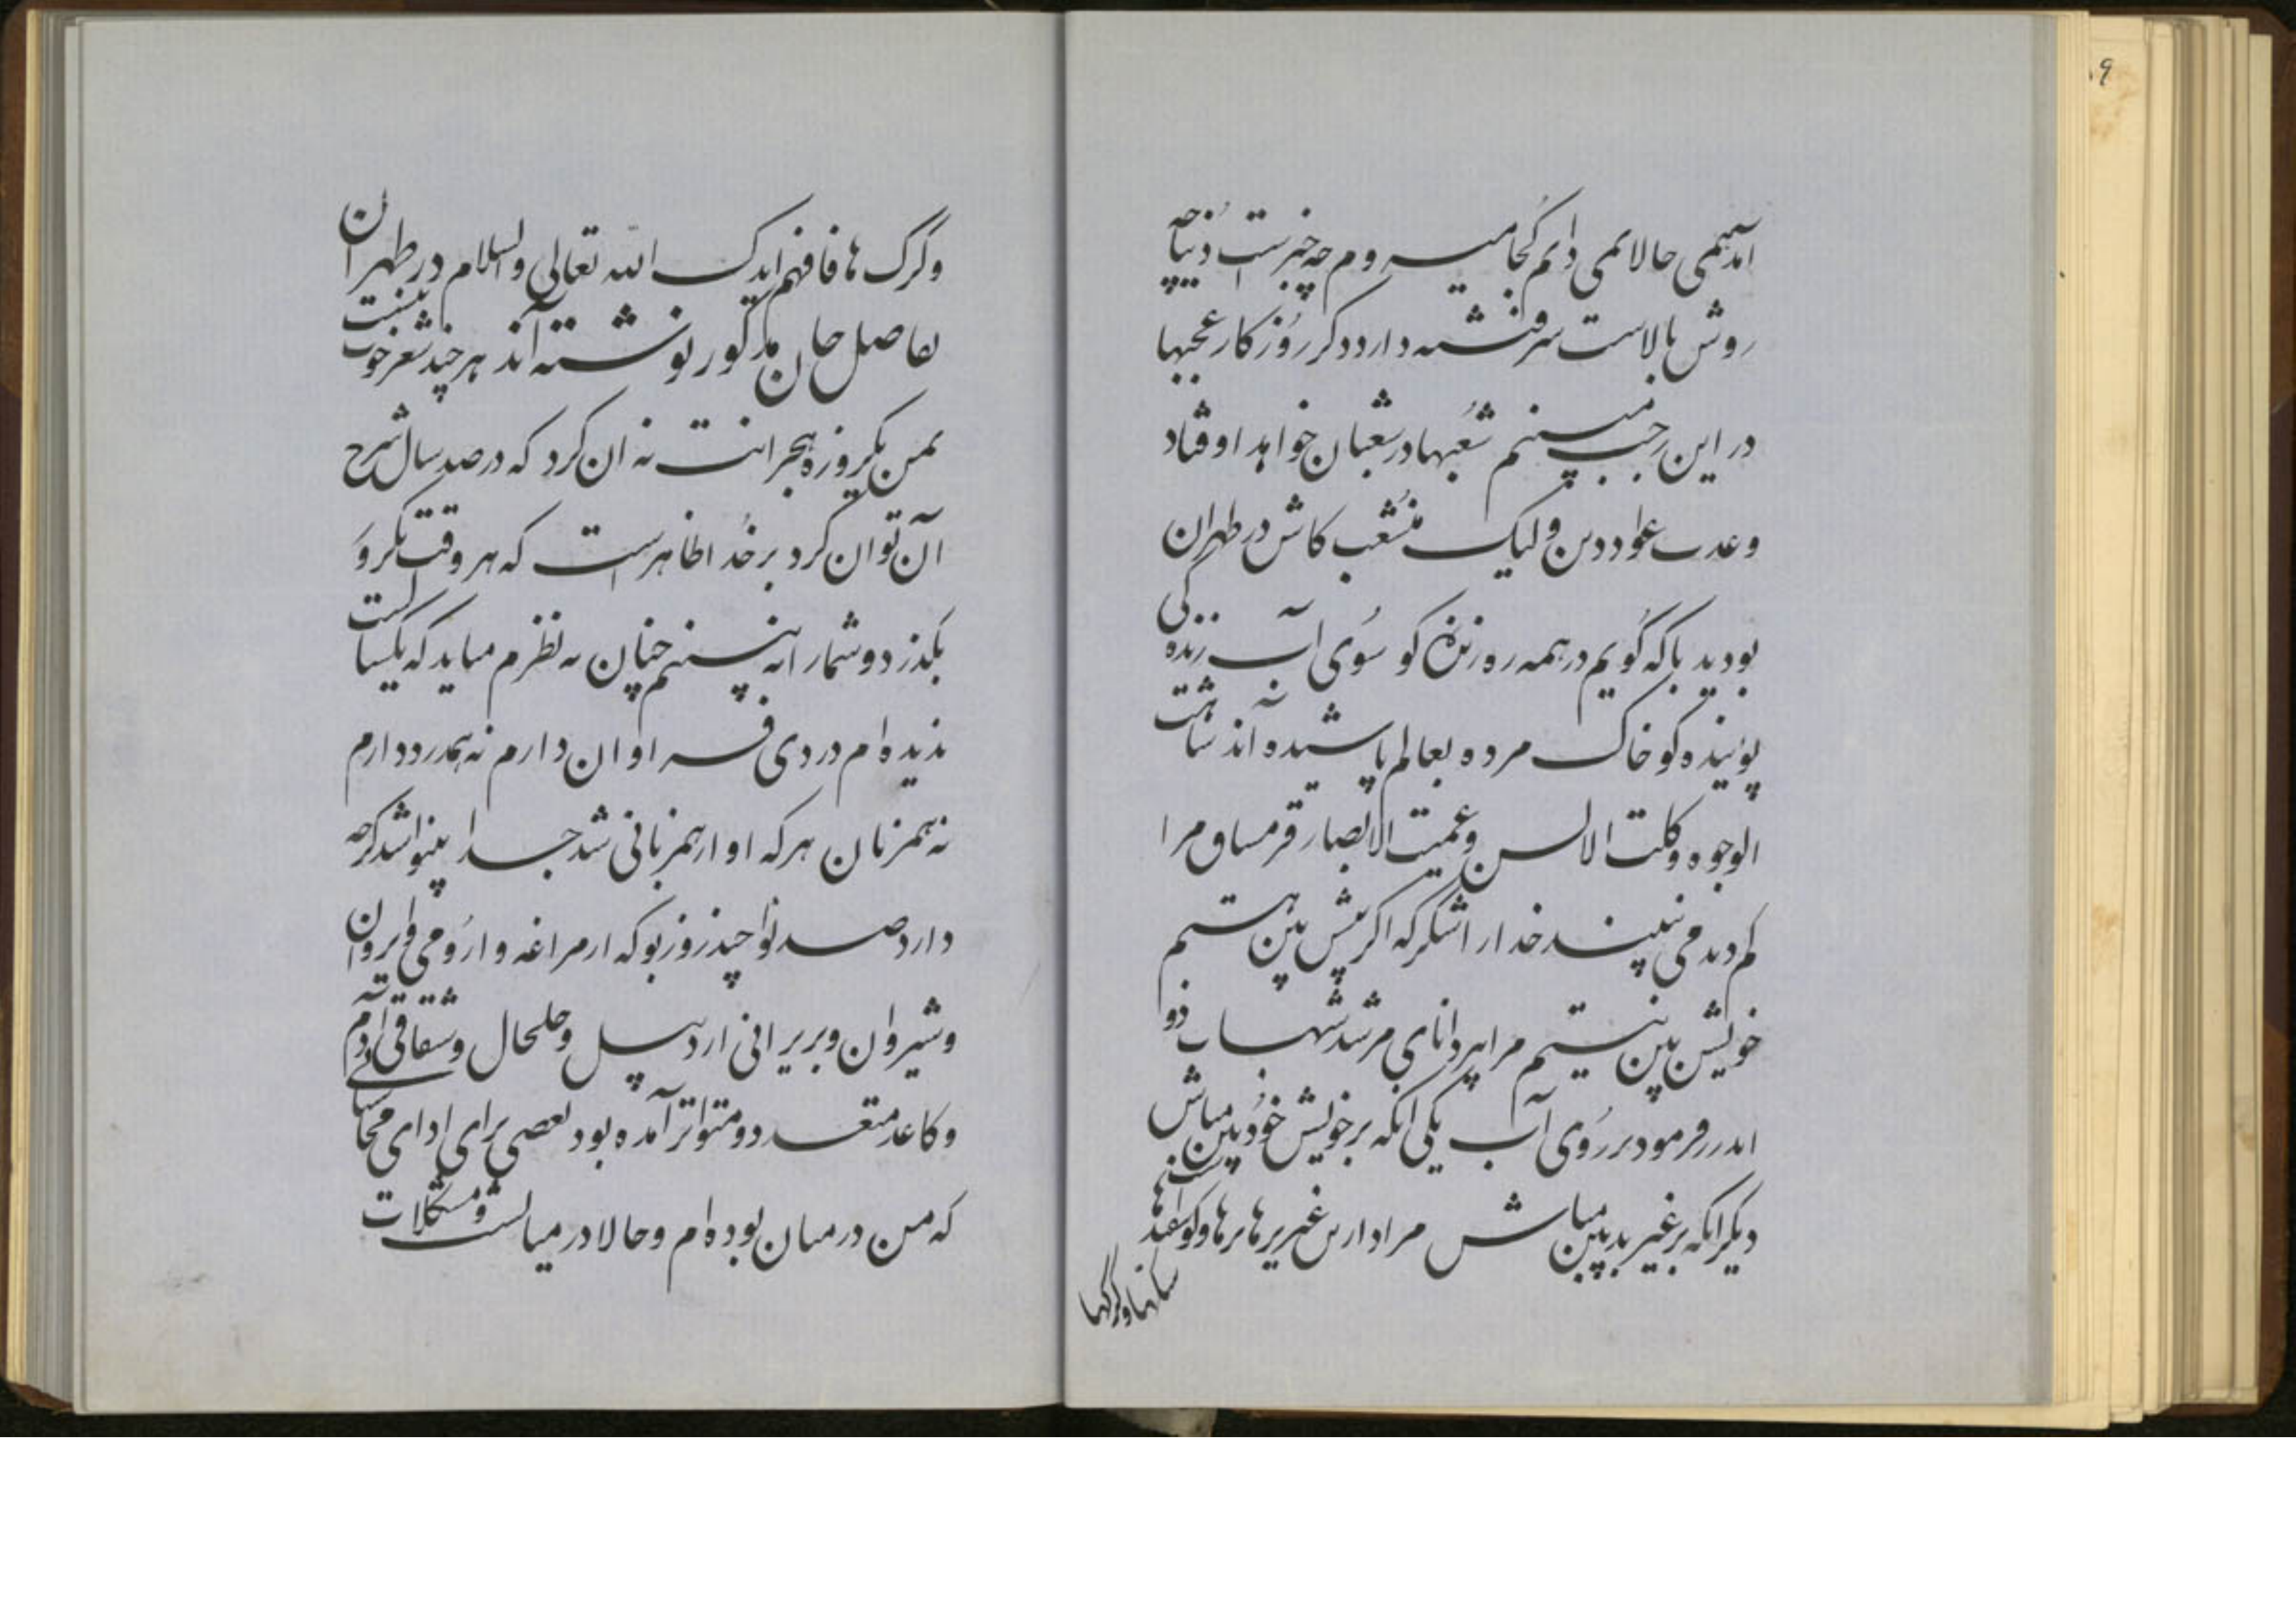 ۹
آمدیمی حالا نمی دانم کجا میروم چه خبرست دنیا چه
روش بالاست سر فتنه دارد دگر روزگار عجبها
در این رجب میبینم شعبها در شعبان خواهد اوفتاد
وعدت عواد دىن ولیک منشعب کاش در طهران
بودید با که گویم در همه ره زنده کو سوی آب زندگی
پوینده کو خاک مرده بعالم پاشیده آند شاهت
الوجوه و کلت الالسن و عمیت الابصار قرمساق مرا
کم دید می نبیند خدا را شکر که اگر پیش بین هستم
خویش بین نیستم مرا پیر دانای مرشد شهاب دو
اندرز فرمود بر روی آب یکی انکه بر خویش خودبین مباش
دیگر انکه بر غیر بدبین مباش مراد ازین غیر برها برها و گوسفندها
سگها و گرگها
و گرگ ها فافهم ایدک الله تعالی والسلام در طهران
بفاصل خان مذکور نوشته آند هر چند شعر خوب نیست
بمن یکروزه هجرانت نه ان کرد که در صد سال شرح
آن توان کرد بر خدا ظاهرست که هر وقت یکروز
بگذرد و شمارا نه بینم چنان به نظرم میاید که یکسالست
ندیده ام دردی فسراوان دارم نه همدرد دارم
نه همزبان هر که او از همزبانی شد جدا بینوا شد گرچه
دارد صد نوا چند روز بو که از مراغه و ارومی و ایروان
و شیروان و بربرانی اردبیل و خلخال و شقاقی آدم
و کاغذ متعدد و متواتر آمده بود بعضی برای ادای محاسباتی
که من در میان بوده ام و حالا در میان نیست و مشکلات